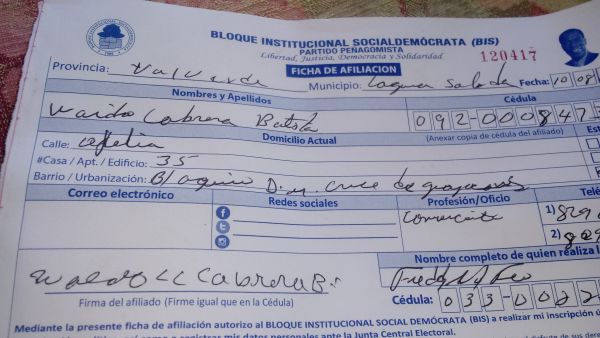 BLOQUE INSTITUCIONAL SOCIALDEMÓCRATA (BIS)
PARTIDO PEÑAGOMISTA
Libertad, Justicia, Democracia y Solidaridad
120417
FICHA DE AFILIACION
Provincia: Valverde Municipio: Laguna Salada Fecha: 10 08
Nombres y Apellidos Cédula
Cabrera 092-000847
(Anexar copia de cédula del afiliado)
Domicilio Actual
Calle:
#Casa / Apt. / Edificio: 35
Barrio / Urbanización: D. M. Cruce de
Correo electrónico Redes sociales Profesión/Oficio Telé
Comerciante 1) 829
2) 829
Nombre completo de quien realiza l
Waldo Cabrera B. Freddy
Firma del afiliado (Firme igual que en la Cédula) Cédula: 033-0022
Mediante la presente ficha de afiliación autorizo al BLOQUE INSTITUCIONAL SOCIAL DEMÓCRATA (BIS) a realizar mi inscripción
mis datos personales ante la Junta Central Electoral.